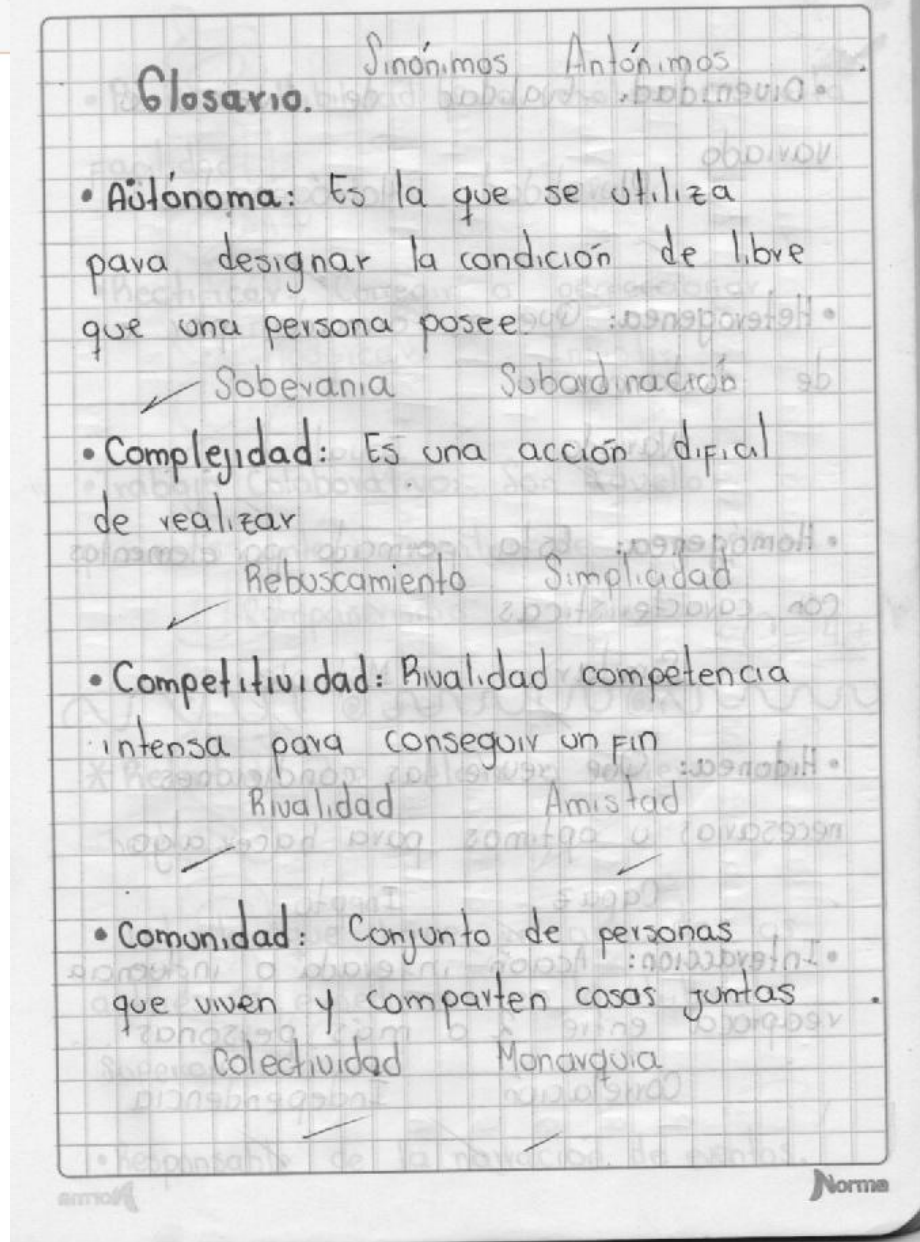 Sinónimos Antónimos
Glosario.
• Aútónoma: Es la que se utiliza
para designar la condición de libre
que una persona posee.
Soberania Subordinación
• Complejidad: Es una acción dificil
de realizar
Rebuscamiento Simplicidad
• Competitividad: Rivalidad competencia
intensa para conseguir un fin
Rivalidad Amistad
• Comunidad: Conjunto de personas
que viven y comparten cosas juntas
Colectividad Monarquia
Norma